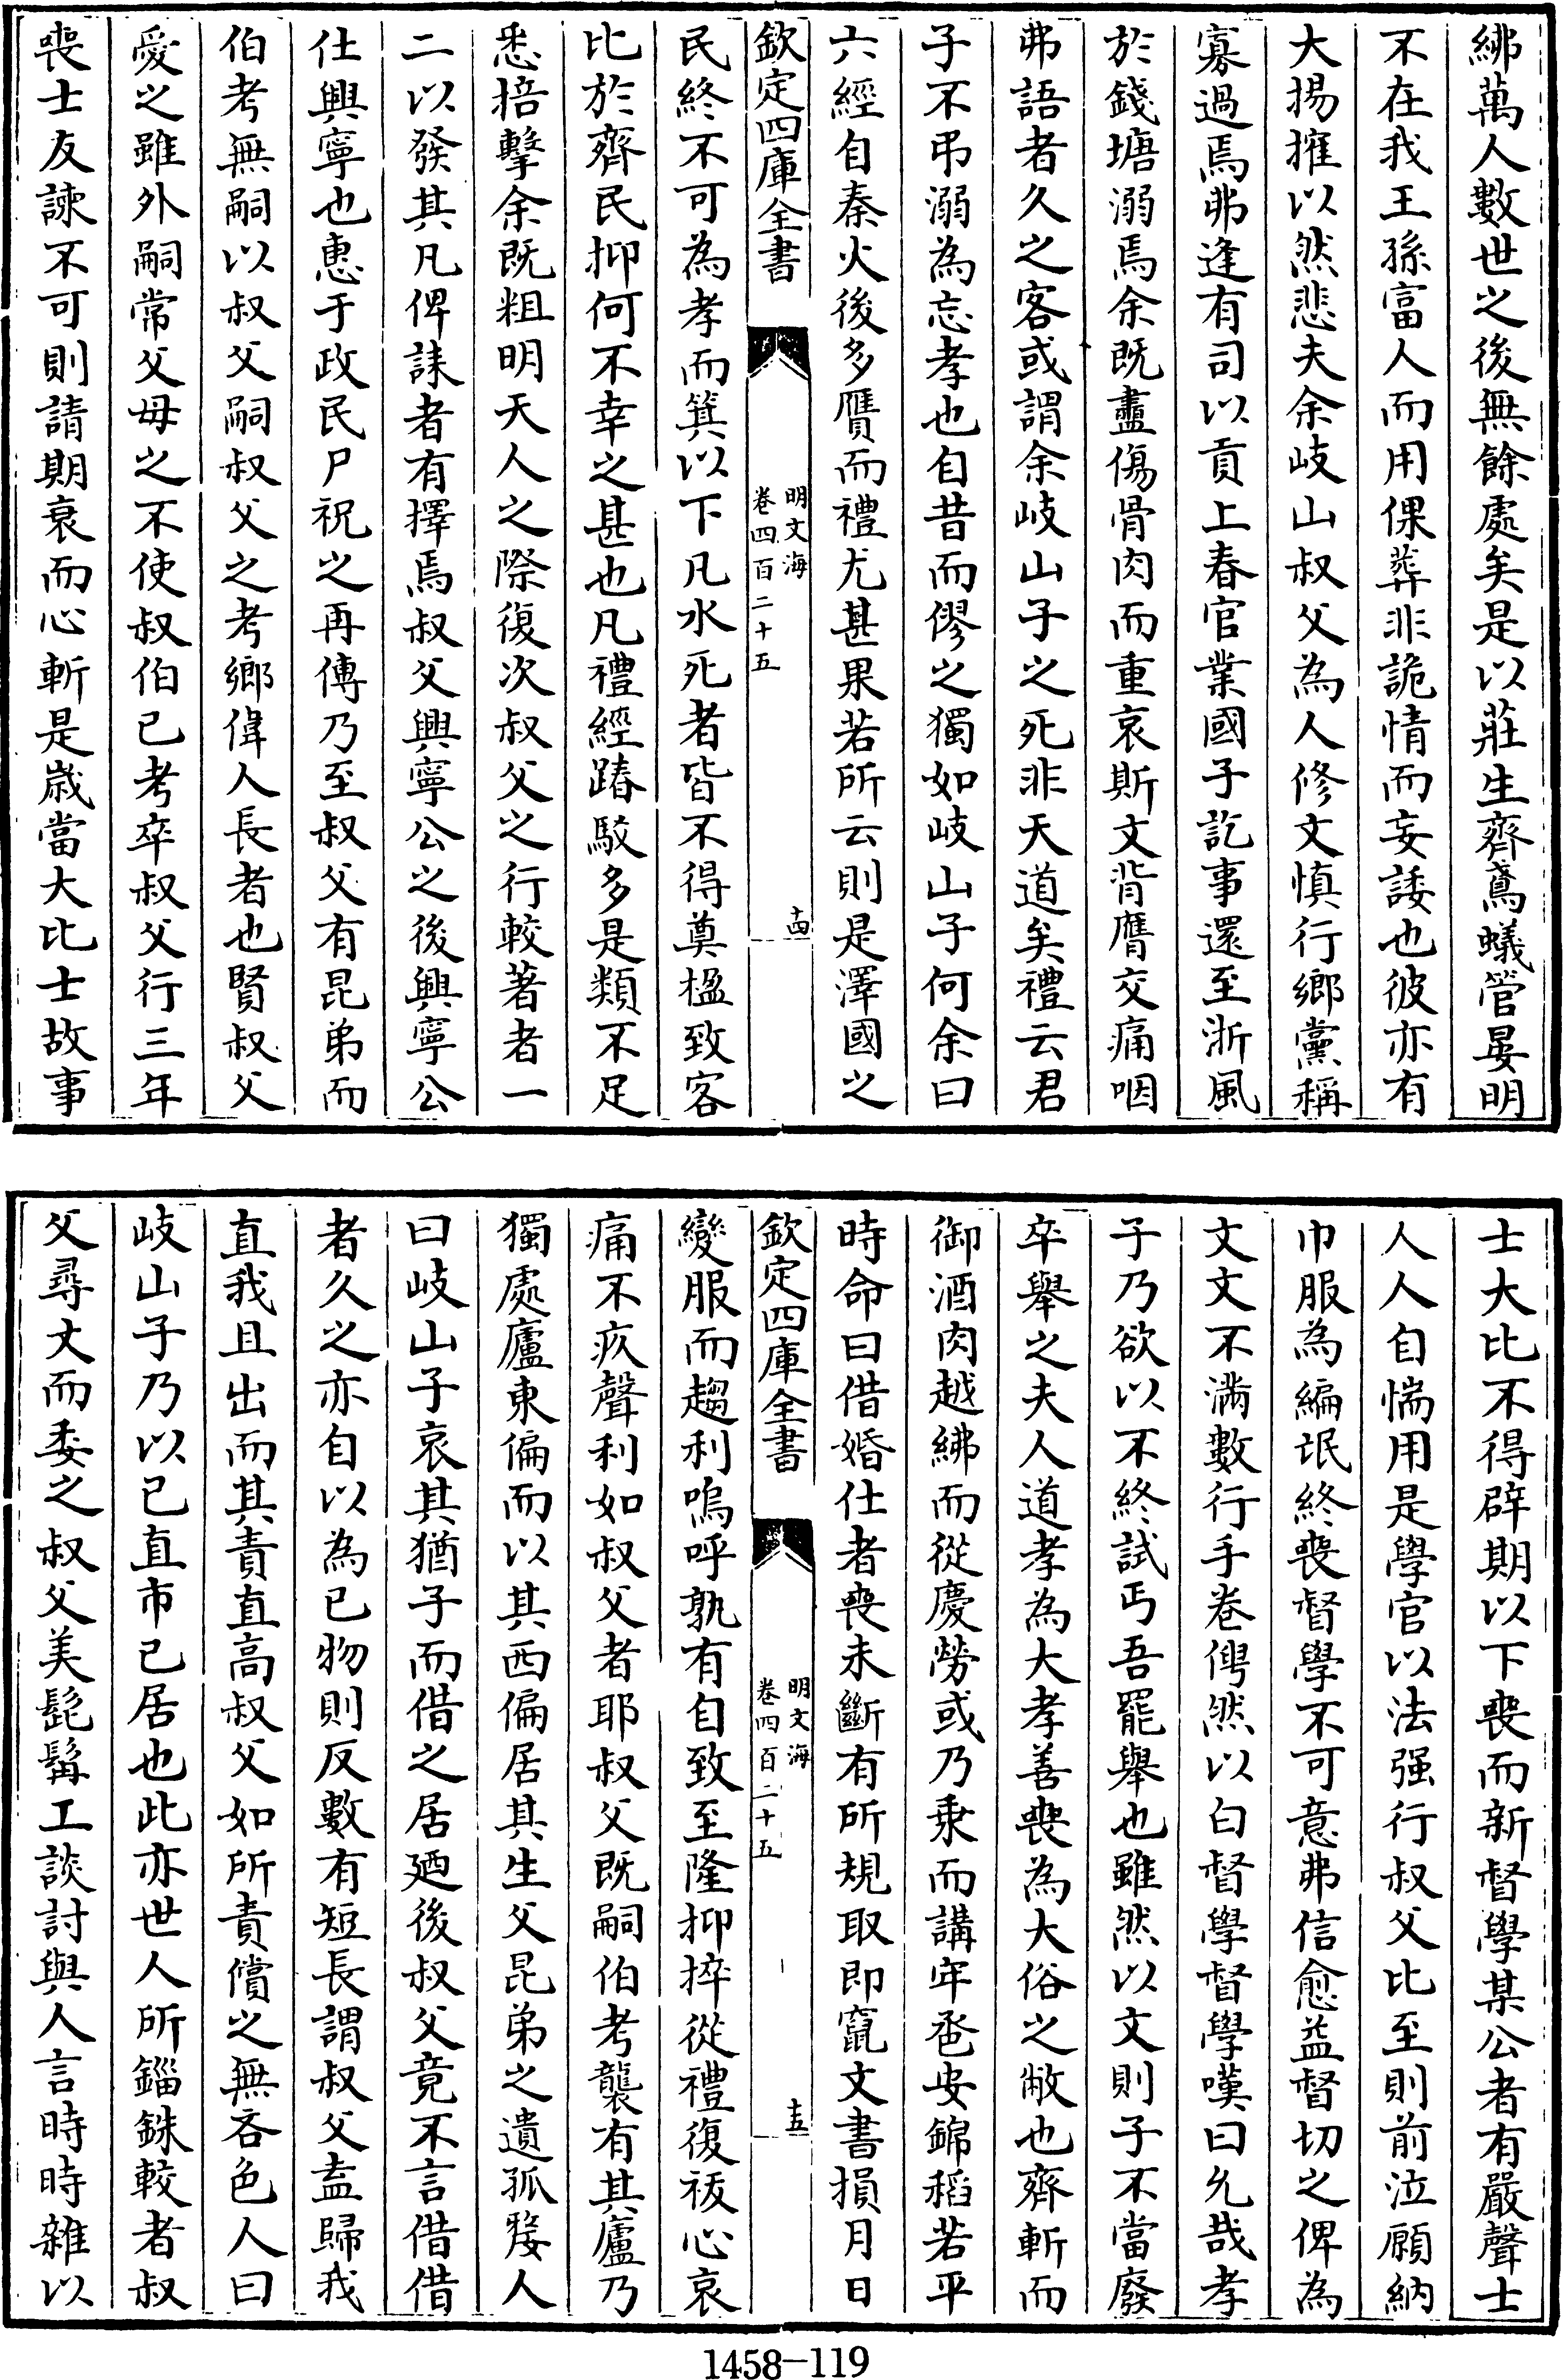 紼萬人數世之後無餘處矣是以莊生齊鳶蟻管晏明
不在我王孫富人而用倮葬非詭情而妄諉也彼亦有
大揚搉以然悲夫余岐山叔父為人修文慎行鄉黨稱
寡過焉弗逢有司以貢上春官業國子訖事還至浙風
於錢塘溺焉余既盡傷骨肉而重哀斯文背膺交痛咽
弗語者久之客或謂余岐山子之死非天道矣禮云君
子不弔溺為忘孝也自昔而僇之獨如岐山子何余曰
六經自秦火後多贋而禮尤甚果若所云則是澤國之
欽定四庫全書
明文海
卷四百二十五
十四
民終不可為孝而箕以下凡水死者皆不得奠楹致客
比於齊民抑何不幸之甚也凡禮經踳駁多是類不足
悉掊擊余既粗明天人之際復次叔父之行較著者一
二以發其凡俾誄者有擇焉叔父興寧公之後興寧公
仕興寧也惠于政民尸祝之再傳乃至叔父有昆弟而
伯考無嗣以叔父嗣叔父之考鄉偉人長者也賢叔父
愛之雖外嗣常父母之不使叔伯已考卒叔父行三年
喪士友諫不可則請期衰而心斬是歲當大比士故事
士大比不得辟期以下喪而新督學某公者有嚴聲士
人人自惴用是學官以法强行叔父比至則前泣願納
巾服為編氓終喪督學不可意弗信愈益督切之俾為
文文不滿數行手卷俜然以白督學督學嘆曰允哉孝
子乃欲以不終試丐吾罷舉也雖然以文則子不當廢
卒舉之夫人道孝為大孝善喪為大俗之敝也齊斬而
御酒肉越紼而從慶勞或乃乘而講牢卺安錦稻若平
時命曰借婚仕者喪未斷有所規取即竄文書損月日
欽定四庫全書
明文海
卷四百二十五
十五
變服而趨利嗚呼孰有自致至隆抑捽從禮復祓心哀
痛不疚聲利如叔父者耶叔父既嗣伯考襲有其廬乃
獨處廬東偏而以其西偏居其生父昆弟之遺孤嫠人
曰岐山子哀其猶子而借之居廼後叔父竟不言借借
者久之亦自以為已物則反數有短長謂叔父盍歸我
直我且出而其責直高叔父如所責償之無吝色人曰
岐山子乃以已直市已居也此亦世人所錙銖較者叔
父尋丈而委之叔父美髭髯工談討與人言時時雜以
1458—119